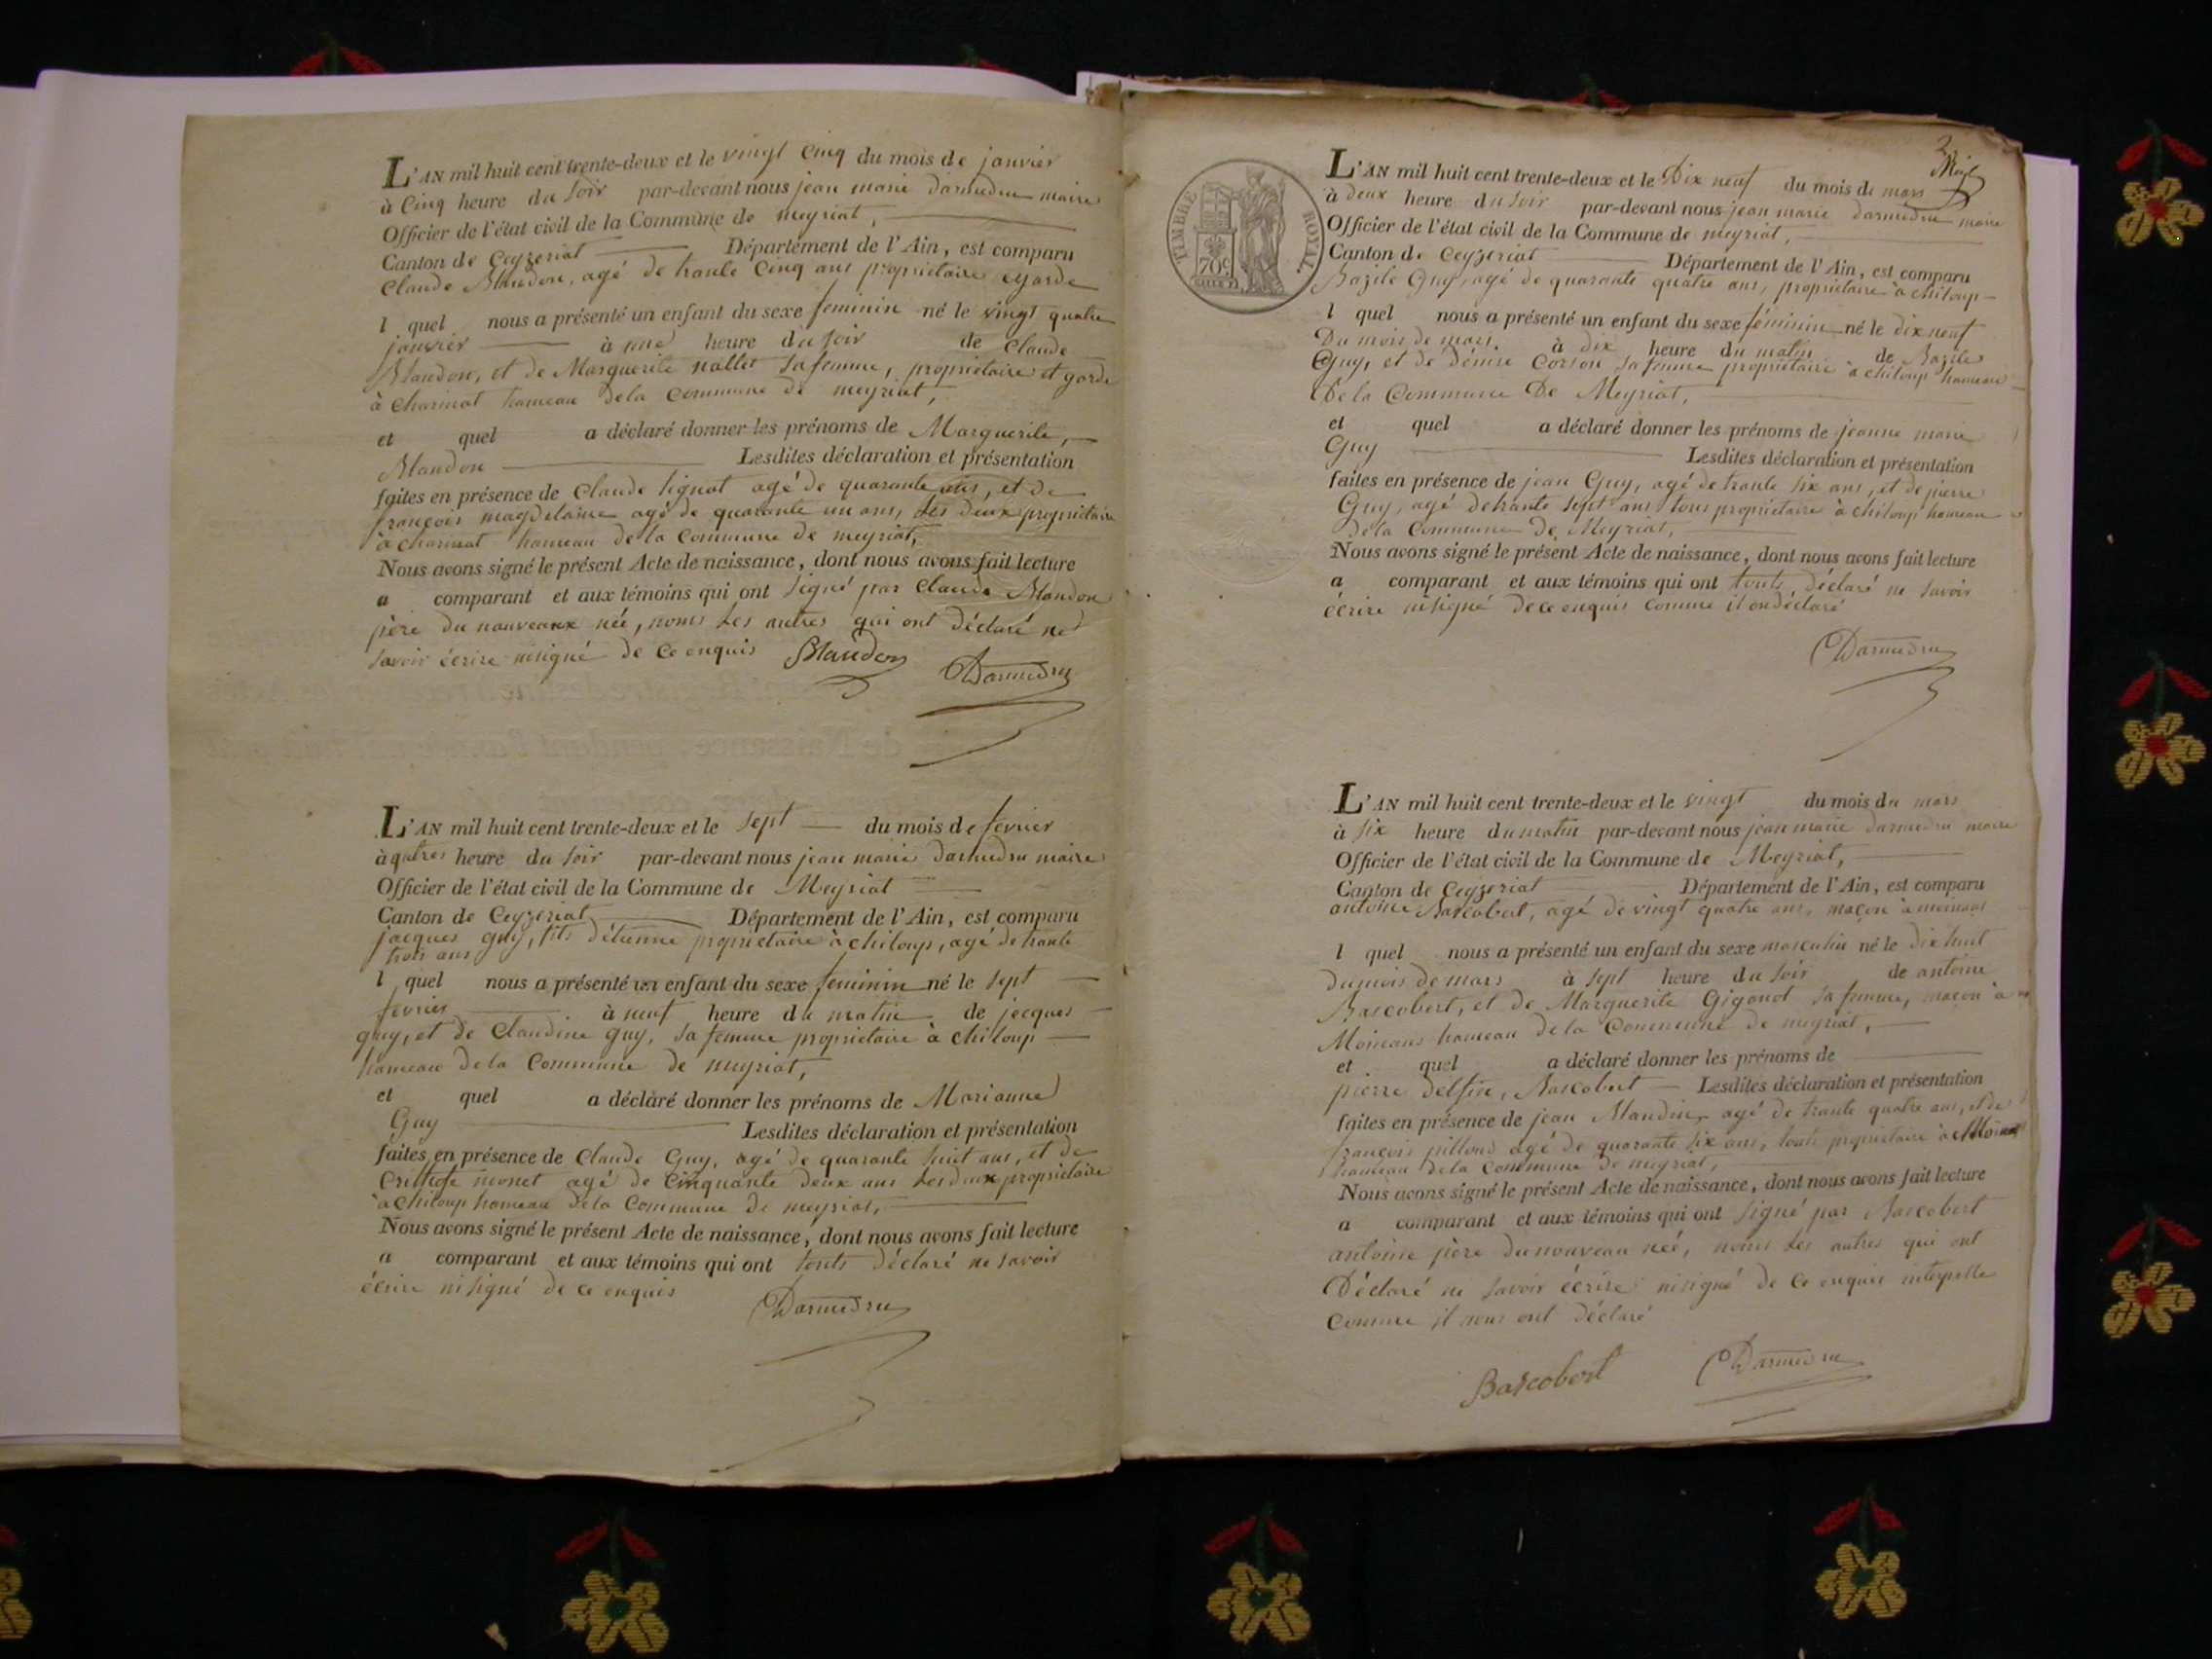 L'AN mil huit cent trente-deux et le vingt cinq du mois de janvier
à Cinq heure du soir par-devant nous jean marie darmedru maire
Officier de l'état civil de la Commune de meyriat,
Canton de Ceyzeriat Département de l'Ain, est comparu
Claude Blandon, agé de trante Cinq ans propriétaire egarde
l quel nous a présenté un enfant du sexe feminin né le vingt quatre
janvier à une heure du soir de Claude
Blandon, et de Marguerite nallet sa femme, propriétaire et garde
à Charinat hameau dela Commune de meyriat,
et quel a déclaré donner les prénoms de Marguerite,
Blandon Lesdites déclaration et présentation
faites en présence de Claude signat agé de quarante ans, et de
françois magdelaine agé de quarante un ans, les deux propriétaire
à charinat hameau de la Commune de meyriat,
Nous avons signé le présent Acte de naissance, dont nous avons fait lecture
a comparant et aux témoins qui ont signé par Claude Blandon
père du nauveaux néé, nons les autres qui ont déclaré ne
savoir écrire nisigné de ce enquis Blandon Darmedru
L'AN mil huit cent trente-deux et le sept du mois de fevrier
à qatres heure du soir par-devant nous jean marie darmedru maire
Officier de l'état civil de la Commune de Meyriat
Canton de Ceyzeriat Département de l'Ain, est comparu
jacques guy, fils d'étienne propriétaire à chiloup, agé de trante
trois ans
l quel nous a présenté un enfant du sexe feminin né le sept
fevrier à neuf heure du matin de jacques
guy, et de Claudine guy, sa femme propriétaire à chiloup
hameau dela Commune de meyriat,
et quel a déclaré donner les prénoms de Marianne
Guy Lesdites déclaration et présentation
faites en présence de Claude Guy, agé de quarante huit ans, et de
monet agé de Cinquante deux ans les deux propriétaire
à chiloup hameau dela Commune de meyriat,
Nous avons signé le présent Acte de naissance, dont nous avons fait lecture
a comparant et aux témoins qui ont touts déclaré ne savoir
écrire nisigné de ce enquis
Darmedru
2
TIMBRE ROYAL.
70c
L'AN mil huit cent trente-deux et le Dix neuf du mois de mars
à deux heure du soir par-devant nous jean marie darmedru maire
Officier de l'état civil de la Commune de meyriat,
Canton de Ceyzeriat Département de l'Ain, est comparu
Bazile Guy, agé de quarante quatre ans, propriétaire à chiloup
l quel nous a présenté un enfant du sexe féminin né le dix neuf
Du mois de mars. à dix heure du matin de Bazile
Guy, et de Dénise Corson sa femme propriétaire à chiloup hameau
De la Commune De Meyriat,
et quel a déclaré donner les prénoms de jeanne marie
Guy Lesdites déclaration et présentation
faites en présence de jean Guy, agé de trante six ans, et de pierre
Guy, agé detrante sept ans tous propriétaire à chiloup hameau
de la Commune de Meyriat,
Nous avons signé le présent Acte de naissance, dont nous avons fait lecture
a comparant et aux témoins qui ont touts déclaré ne savoir
écrire nisigné de ce enquis comme il ondéclaré
Darmedru
L'AN mil huit cent trente-deux et le vingt du mois du mars
à six heure du matin par-devant nous jean marie darmedru maire
Officier de l'état civil de la Commune de Meyriat,
Canton de Ceyzeriat Département de l'Ain, est comparu
antoine Bascobert, agé de vingt quatre ans, maçon à moinans
l quel nous a présenté un enfant du sexe masculin né le dixhuit
dumois de mars à sept heure du soir de antoine
Bascobert, et de Marguerite Gigonot sa femme, maçon à
Moinans hameau de la Commune de meyriat,
et quel a déclaré donner les prénoms de
pierre Delfin, Bascobert Lesdites déclaration et présentation
faites en présence de jean Blandin, agé de trante quatre ans, et de
françois pillond agé de quarante six ans, touts propriétaire à Moinans
hameau dela Commune de meyriat,
Nous avons signé le présent Acte de naissance, dont nous avons fait lecture
a comparant et aux témoins qui ont signé par Bascobert
antoine père du nouveau néé, nons les autres qui ont
Déclaré ne savoir écrire nisigné de ce enquis interpelle
Comme il nous ont déclaré
Bascobert Darmedru